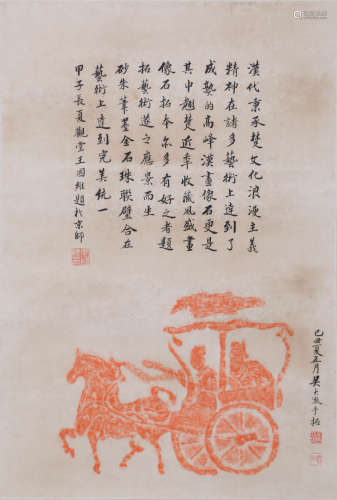 漢代秉承楚文化浪漫主義
精神在諸多藝術上達到了
成熟的高峰漢畫像石更是
其中翹楚近年收藏風盛畫
像石拓本尔多有好之者題
拓藝術遂之應景而生
砂朱筆墨金石珠聯璧合在
藝術上達到完美統一
甲子長夏觀堂王國維題於京師
己丑夏五月吳大澂手拓